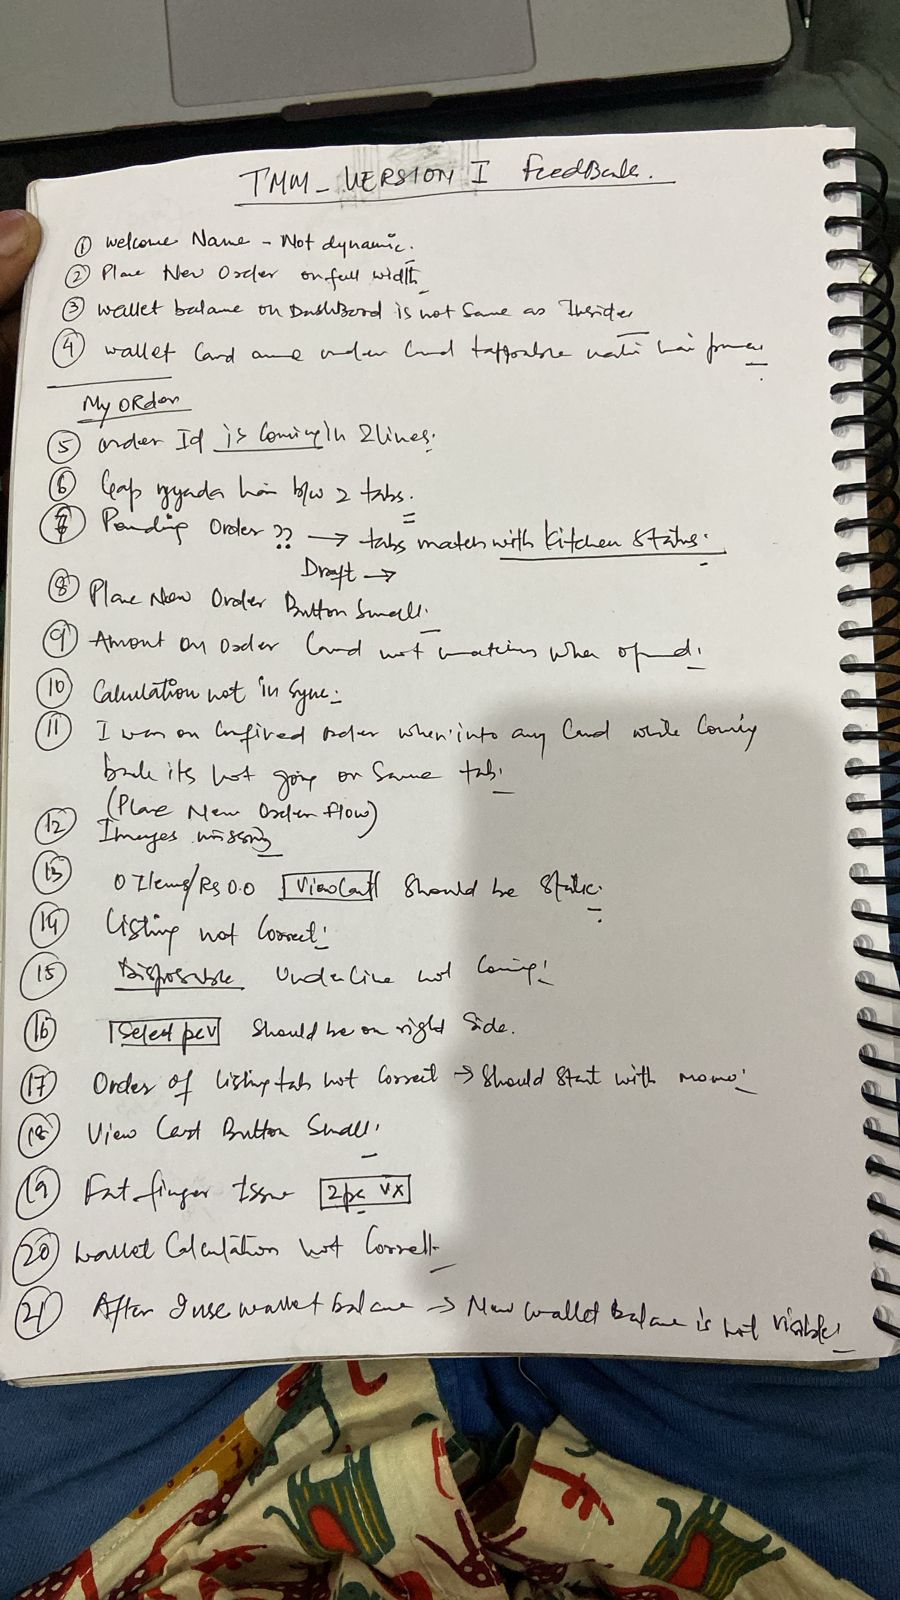 TMM - VERSION I FeedBack.
① Welcome Name - Not dynamic.
② Place New Order on full width
③ Wallet balance on DashBoard is not Same as Inside
④ Wallet Card and order Card tappable nahi hai
My ORder
⑤ Order Id is Coming In 2 lines.
⑥ Gap zyada hai b/w 2 tabs.
⑦ Pending Order ?? → tabs match with Kitchen Status.
Draft →
⑧ Place New Order Button Small.
⑨ Amount on Order Card not matching when opened.
⑩ Calculation not in Sync.
⑪ I was on Confirmed order when into any Card while Coming
back its not going on Same tab.
(Place New Order flow)
⑫ Images missing
⑬ 0 Items/Rs 0.0 View Cart Should be Static.
⑭ Listing not Correct.
⑮ Disposable Underline not Coming.
⑯ Select pc v Should be on right Side.
⑰ Order of listing tab not Correct → Should Start with Momo.
⑱ View Cart Button Small.
⑲ Fat finger Issue 2pc v x
⑳ Wallet Calculation not Correct.
㉑ After I use wallet balance → New wallet balance is not visible.